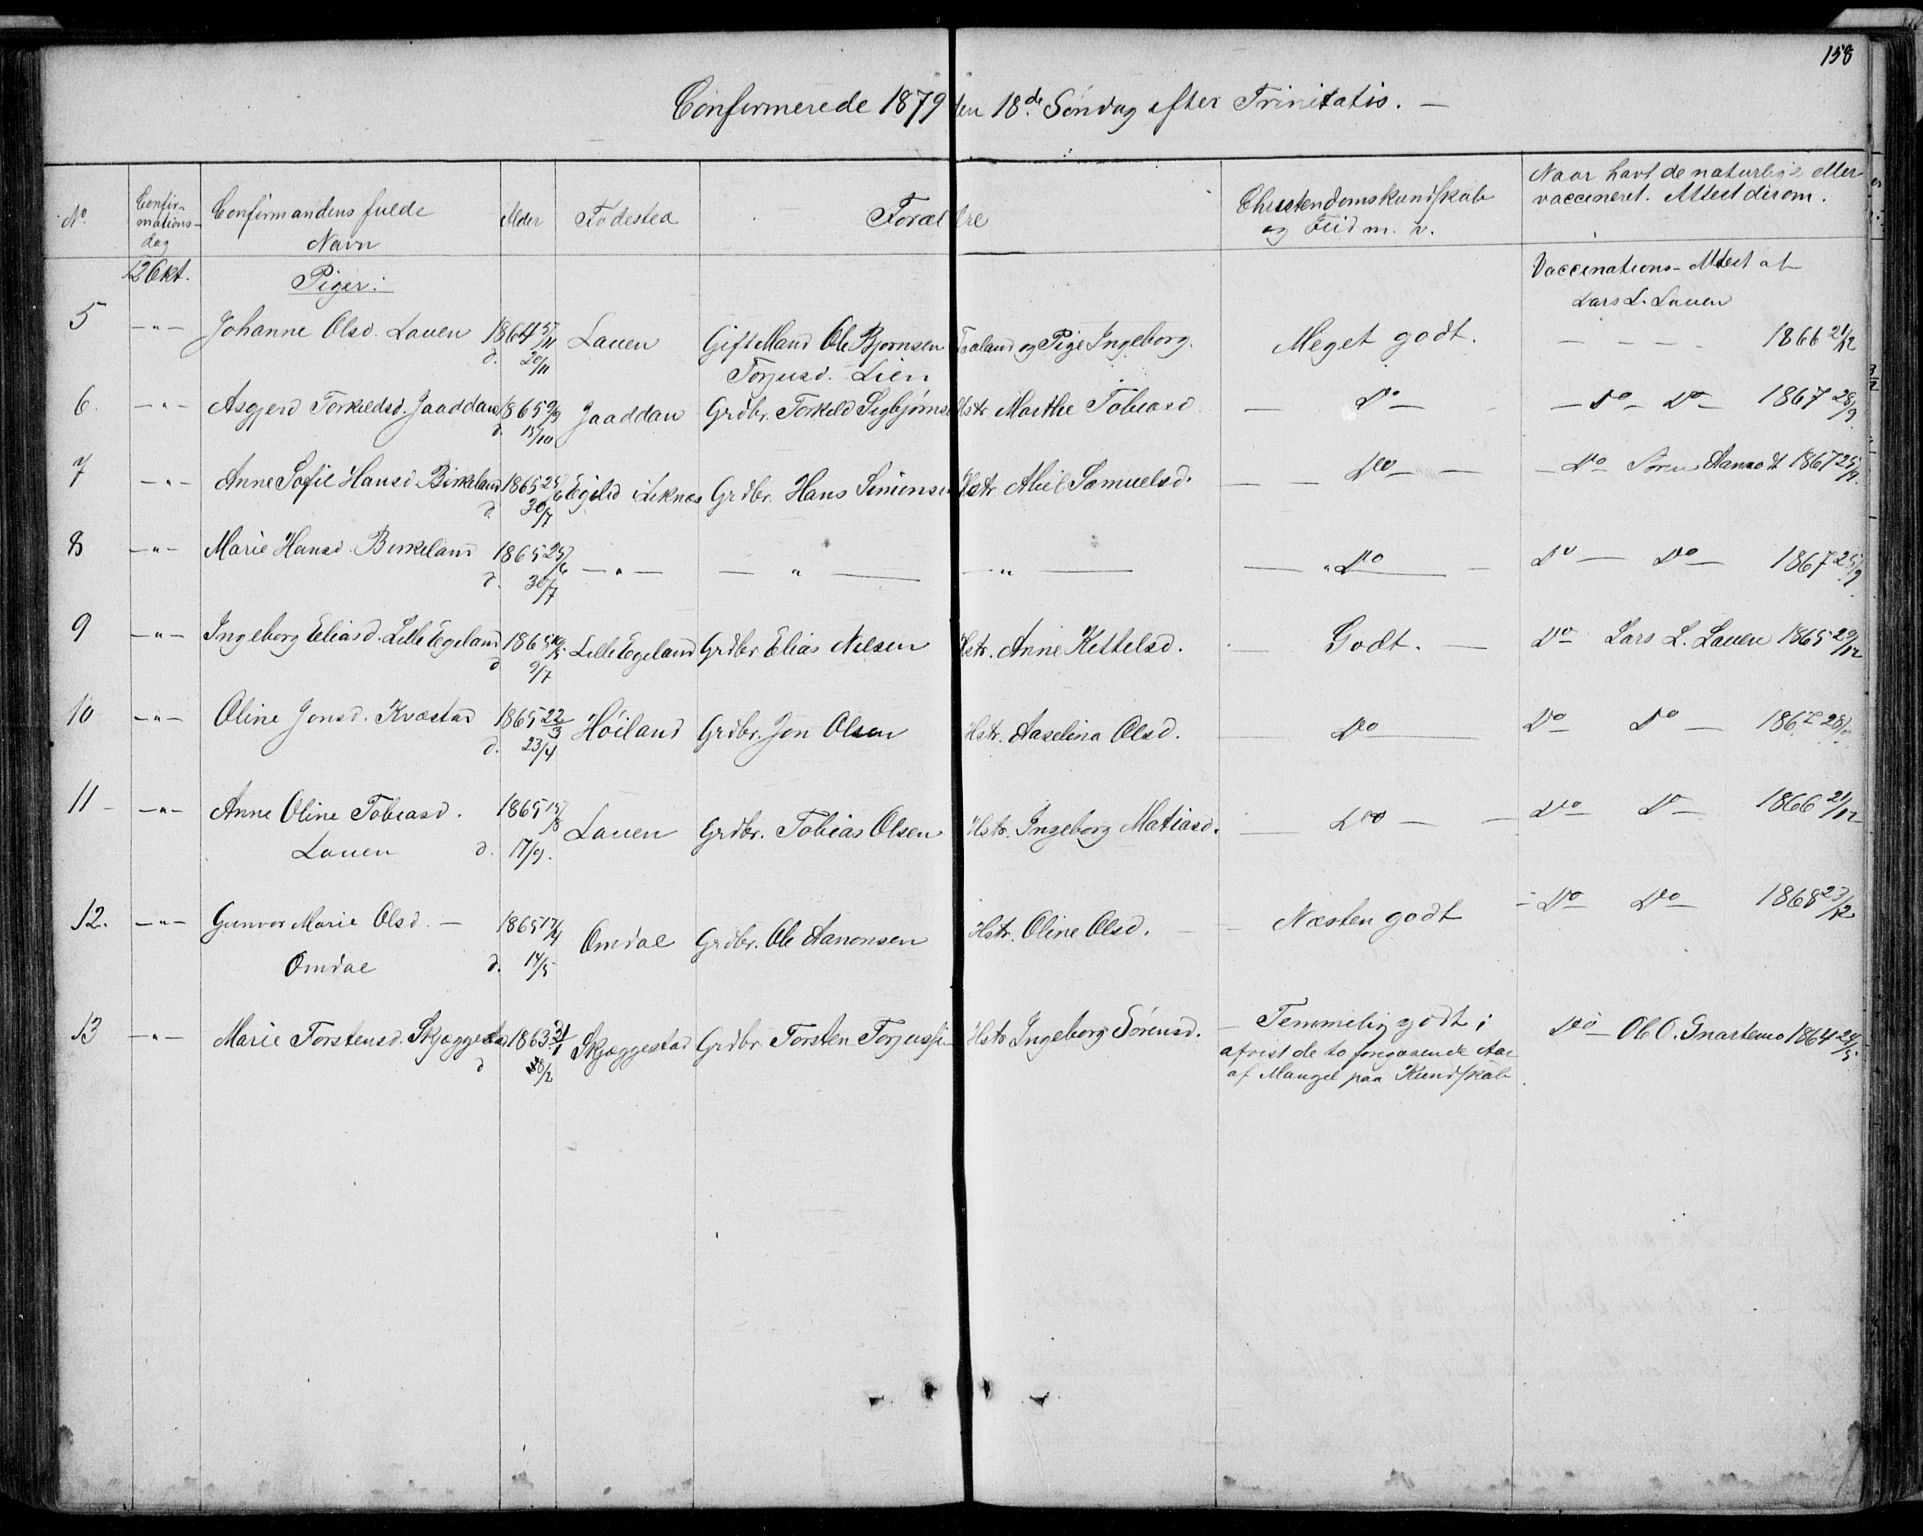 158
Confirmerede 1879 den 18de Søndag efter Trinitatis. —
No. Confirmations-dag Confirmandens fulde Navn Alder Fødested Forældre Christendomskundskab og Flid m. v. Naar havt de naturlige eller vaccineret. Attest derom.
12 Okt. Piger: Vaccinations-Attest af
Lars L. Lauen
5 — " — Johanne Olsd. Lauen 1864 5/11 Lauen Gift Mand Ole Bjørnsen og Pige Ingeborg. Meget godt. — — — — 1866 21/12
d. 20/11 Torjusd. Lien
6. — " — Asgjerd Torkeldsd. Jaaddan 1865 9/9 Jaaddan Grdbr. Torkeld Sigbjørns Hstr. Marthe Tobiasd — Do — — Do — Do — 1867 28/9
d. 15/10
7 — " — Anne Sofie Hansd Birkeland 1865 25/6 Egelid i Liknæs Grdbr. Hans Simonsen Hstr. Abiel Samuelsd. — — Do — — — Do Søren 1867 25/9
d. 30/7
8 — " — Marie Hansd. Birkeland 1865 25/6 — " — — " — — " — — " Do — — Do — Do — 1867 25/9
d. 30/7
9 — " — Ingeborg Eliasd. Lille Egeland 1865 Lille Egeland Grdbr Elias Nilsen Hstr. Anne Kittelsd. — Godt. — Do Lars L. Lauen 1865 29/12
d 9/7
10 — " — Oline Jonsd. Kvæstad 1865 22/3 Høiland Grdbr. Jon Olsen Hstr. Aaselina Olsd. — Do — Do Do — 1867 28/9
d. 23/4
11 — — " — Anne Oline Tobiasd. 1865 15/8 Lauen Grdbr. Tobias Olsen Hstr. Ingeborg Matiasd. — Do — — Do Do — 1866 21/12
Lauen d. 17/9.
12. — " — Gunvor Marie Olsd. — 1865 17/4 Omdal Grdbr. Ole Aanonsen Hstr. Oline Olsd. — — Næsten godt — Do Do — 1868 23/12
Omdal d. 14/5
13 — " — Marie Torstensd. Skjæggestad 1863 31/1 Skjæggestad Grdbr Torsten Torjussen Hstr Ingeborg Sørensd. — Temmelig godt; Do — Ol. O. Snartemo 1864 24/5
d 8/2 afvist de to foregaaende Aar
af Mangel paa Kundskab.